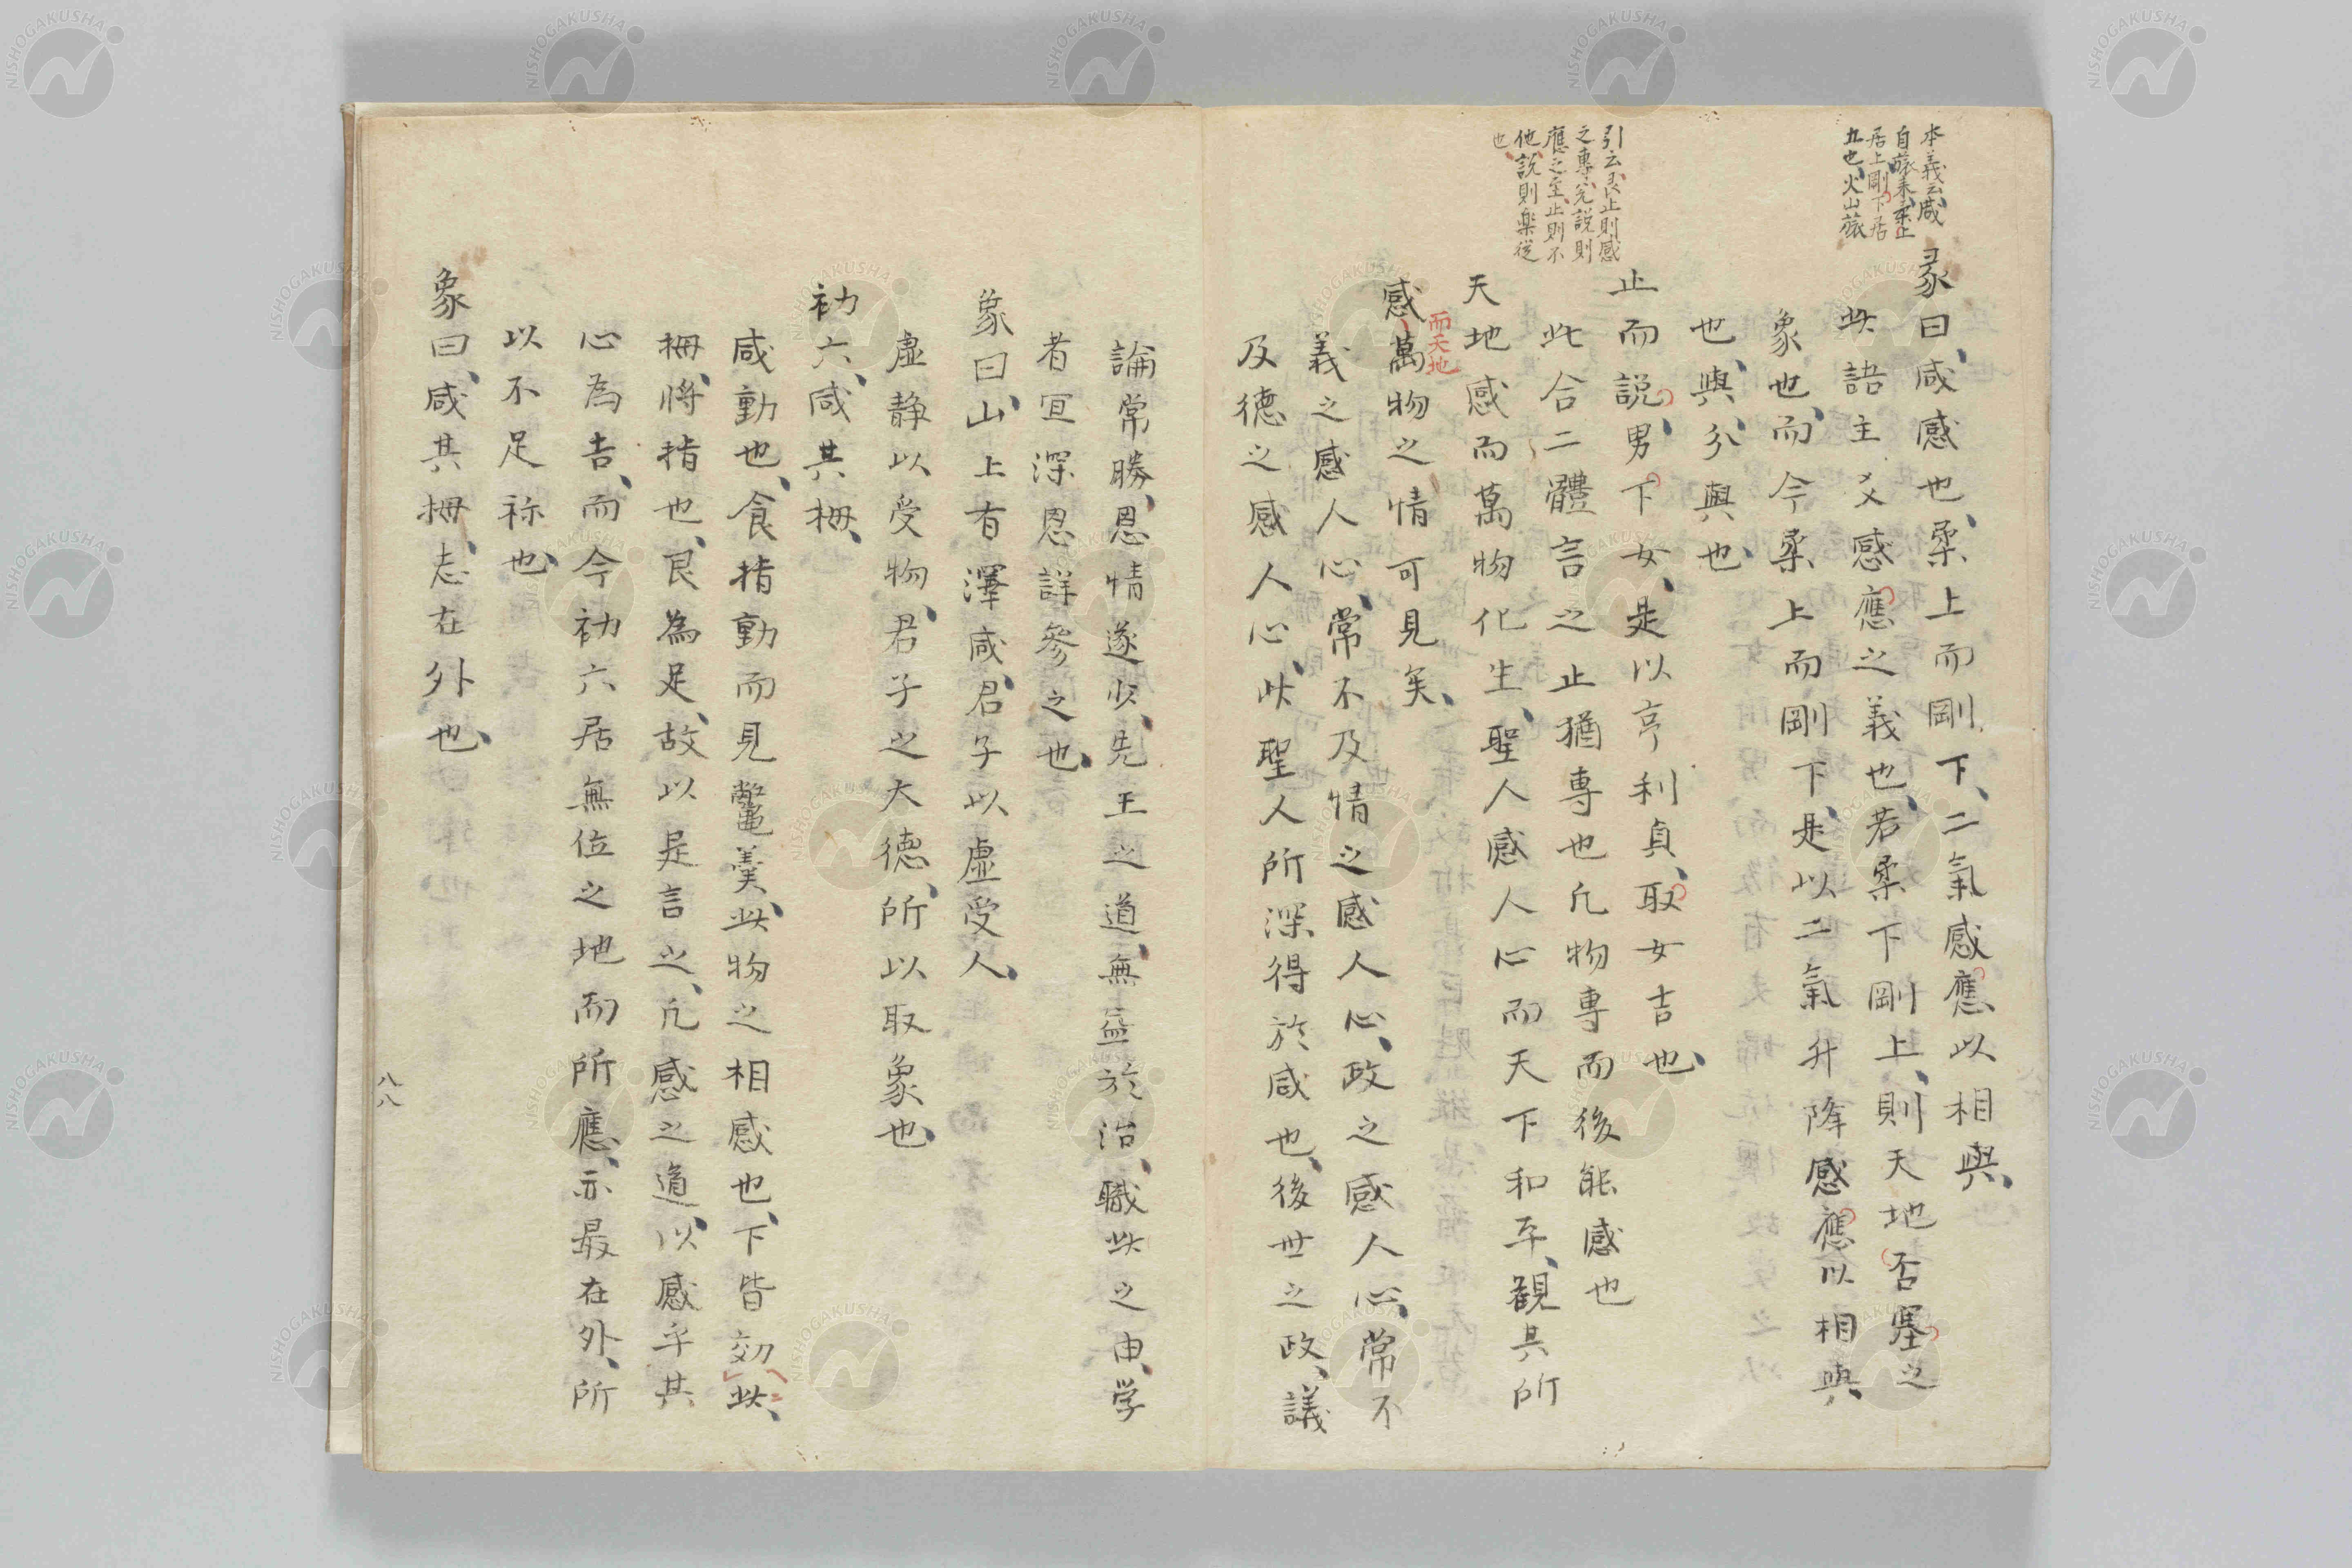 本義云咸
自旅来柔上
居上剛下居
五也火山旅
彖曰、咸感也、柔上而剛下、二氣感應以相與、
此語主爻感應之義也、若柔下剛上、則天地否塞之
象也、而今柔上而剛下、是以二氣升降感應以相與、
也與、
引云艮止則感
之專兌説則
應之至止則不
他説則樂從
也
止而説、男下女、是以亨利貞、取女吉也、
此合二體言之止猶專也凡物專而後能感也
天地感而萬物化生、聖人感人心而天下和平、觀其所
感、
而天地
萬物之情可見矣、
義之感人心、常不及情之感人心、政之感人心、常不
及德之感人心、此聖人所深得於咸也、後世之政、議
論常勝、恩情遂少、先王之道、無益於治、職此之由、学
者宜深思詳參之也、
象曰、山上有澤咸、君子以虛受人、
虛静以受物、君子之大德、所以取象也、
初六、咸其拇、
咸動也、食指動而見鼈羹、此物之相感也、下皆效此、
拇、將指也、艮為足、故以是言之、凡感之道、以感乎其
心為吉、而今初六居無位之地而所應、亦最在外、所
以不足称也、
象曰、咸其拇、志在外也、
八八